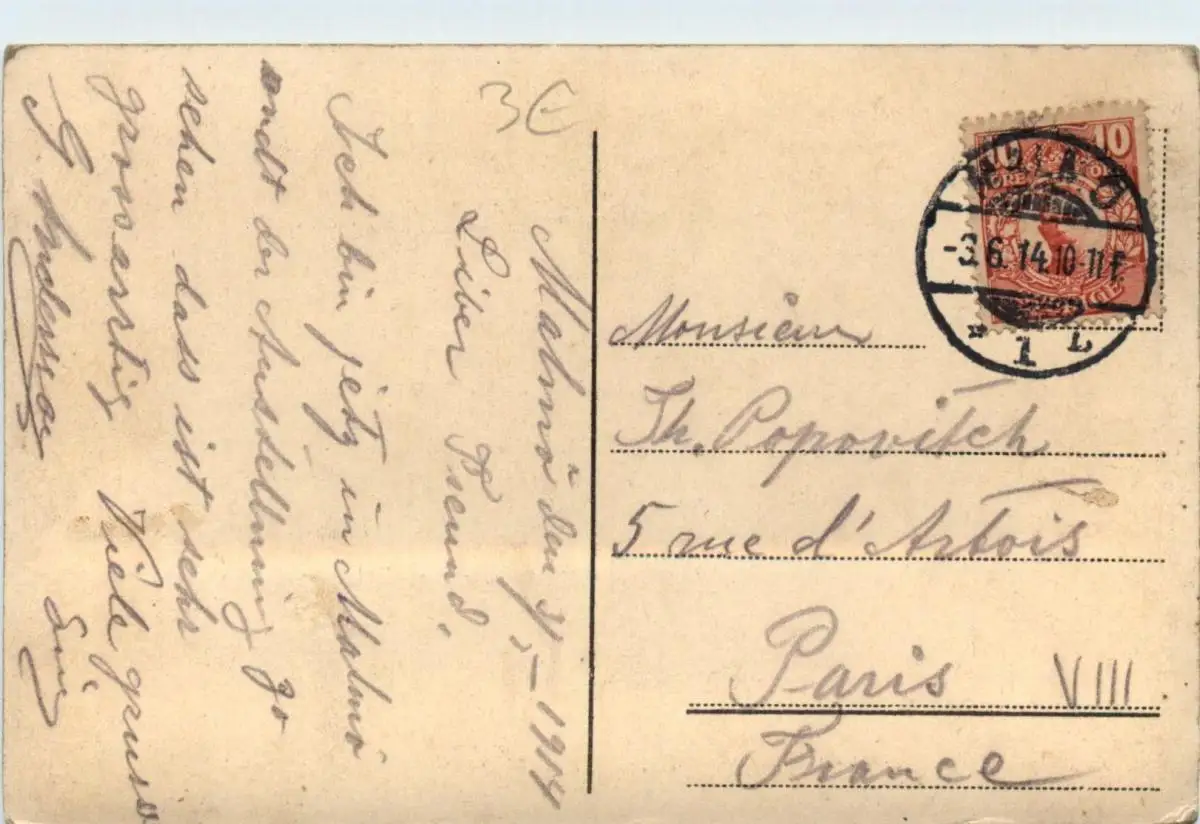 3€
Malmö den 3/6 – 1914
Liber Freund,
Ich bin jetz in Malmö
und der Ausstellung zo
sehen dass ist sehr
grossartig Viele grüsse
Anderson
10 10
MALMÖ
-3.6.14.10-11 F.
* 1 L
Monsieur
Th. Popovitch
5 rue d'Artois
Paris VIII
France